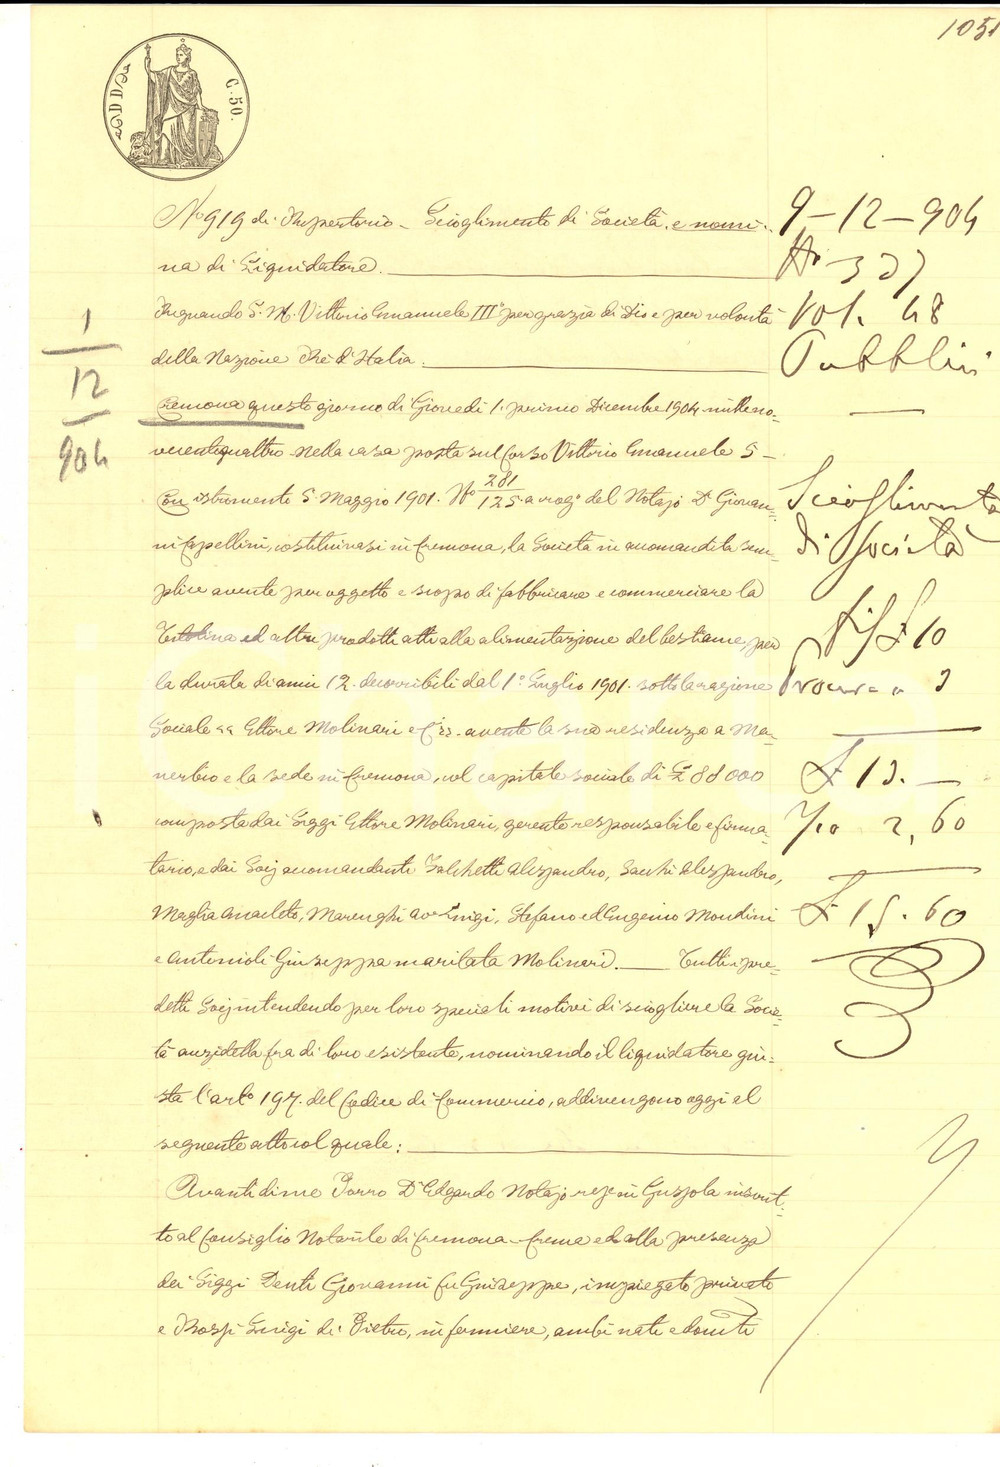 1051
C. 50.
N° 919 di Repertorio - Scioglimento di Società e nomi-
na di Liquidatore.
Regnando S. M. Vittorio Emanuele III° per grazia di Dio e per volontà
della Nazione Re d'Italia.
Cremona questo giorno di Giovedì 1. primo Dicembre 1904 milleno-
vecentoquattro nella casa posta sul Corso Vittorio Emanuele 5 -
Con istrumento 5 Maggio 1901. N° 281/125 a rog° del Notajo Dr Giovan-
ni Capellini, costituivasi in Cremona, la Società in accomandita sem-
plice avente per oggetto e scopo di fabbricare e commerciare la
ed altri prodotti atti alla alimentazione del bestiame, per
la durata di anni 12. decorribili dal 1° Luglio 1901. sotto la ragione
Sociale "Ettore Molinari e C.i" avente la sua residenza a Ma-
nerbio e la sede in Cremona, col capitale sociale di £ 88000
composta dai Siggi Ettore Molinari, gerente responsabile e firma-
tario, e dai Socj accomandanti Talchetti Alessandro, Sacchi Alessandro,
Maglia Anacleto, Marenghi Avv° Luigi, Stefano ed Eugenio Mondini
e Antonioli Giuseppa maritata Molinari. Tutti i pre-
detti Socj intendendo per loro speciali motivi di sciogliere la Socie-
tà anzidetta fra di loro esistente, nominando il liquidatore giu-
sta l'art° 197. del Codice di Commercio, addivengono oggi al
seguente atto col quale:
Avanti di me Porro Dr Edgardo Notajo res.e in Gussola inscrit-
to al Consiglio Notarile di Cremona - Crema ed alla presenza
dei Siggi Denti Giovanni fu Giuseppe, impiegato privato
e Rossi Luigi di Pietro, infermiere, ambi nati e domiti
1
12
904
9-12-904
N° 327
Vol. 48
Pubblici
Scioglimento
di Società
£ 10
3
£ 13. -
2,60
£ 15.60